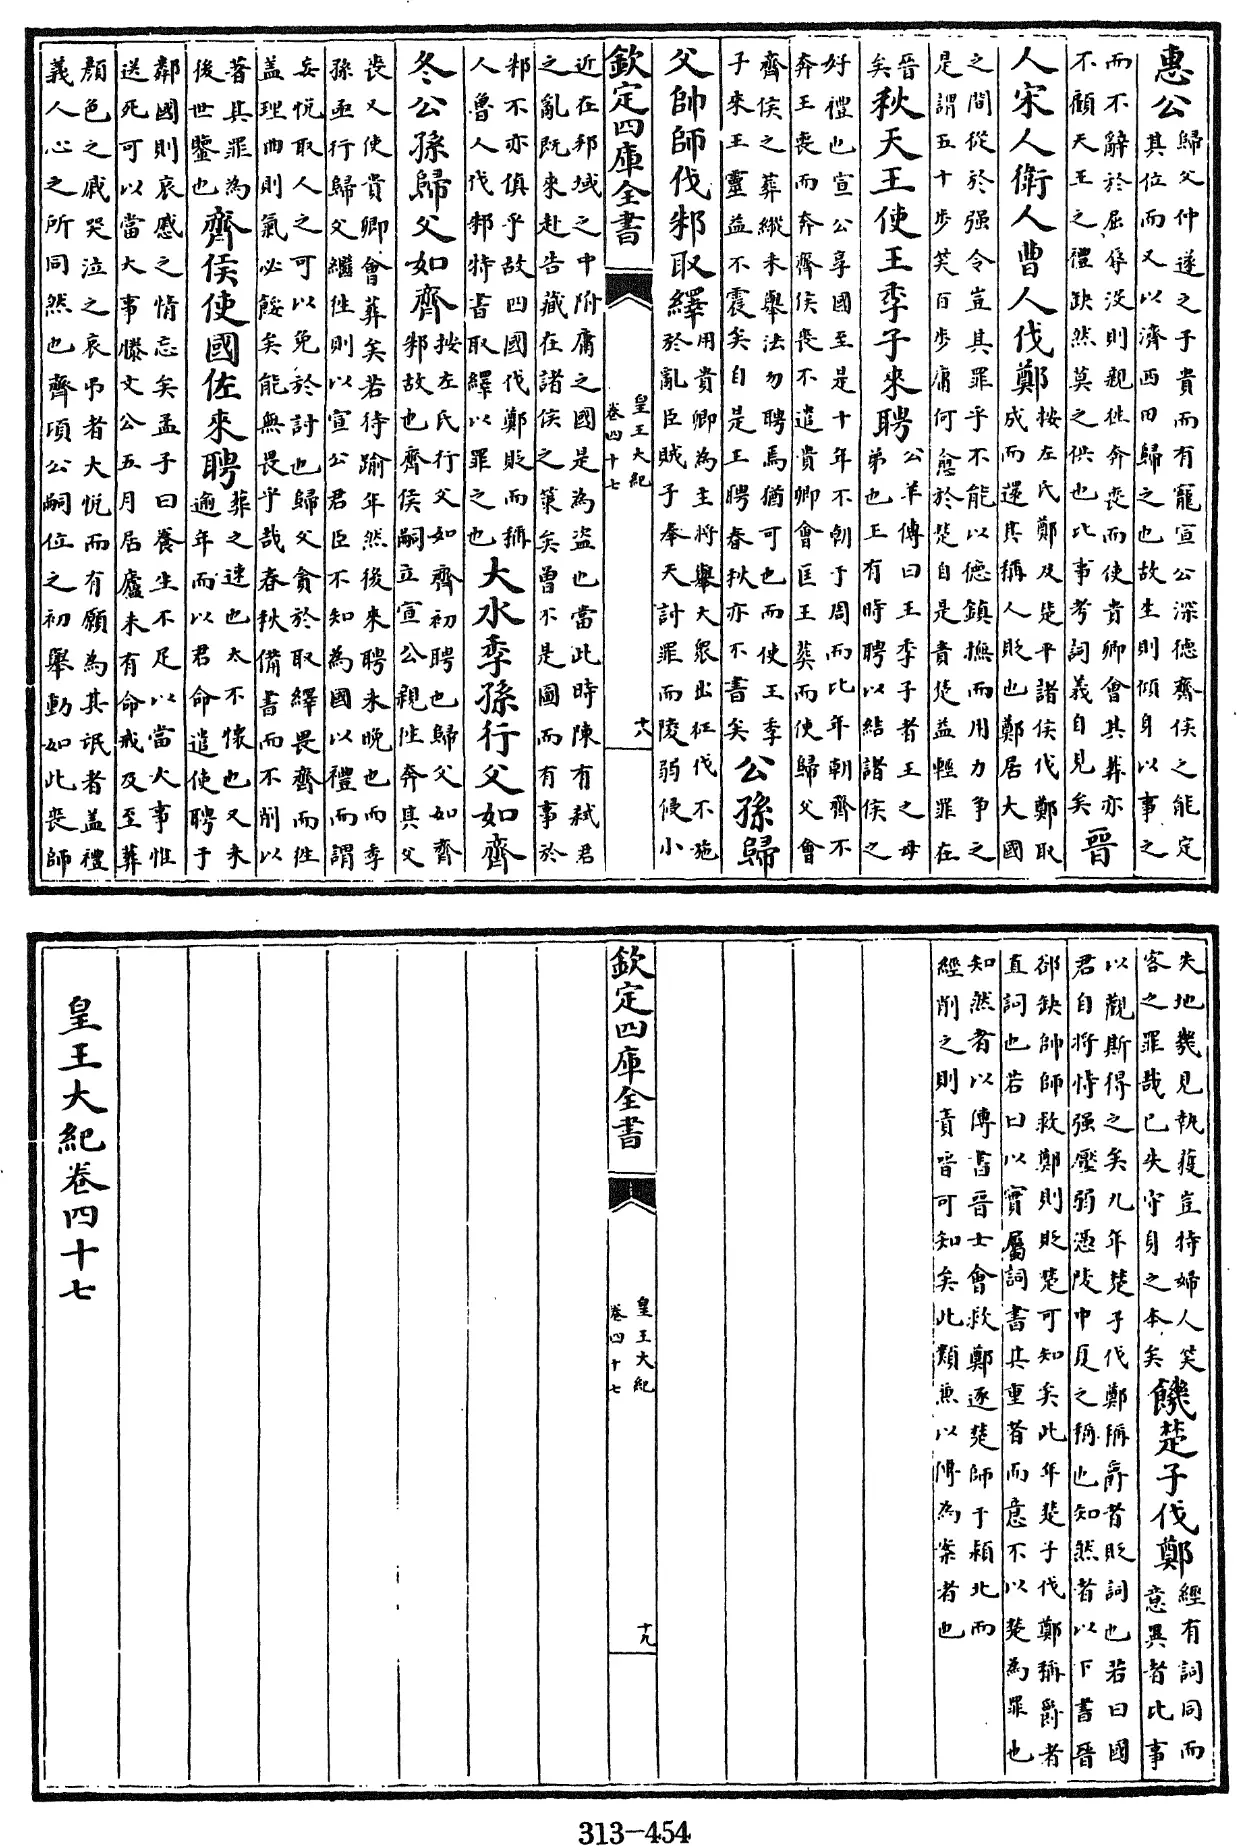 惠公歸父仲遂之子貴而有寵宣公深德齊侯之能定
其位而又以濟西田歸之也故生則傾身以事之
而不辭於屈辱没則親往奔喪而使貴卿會其葬亦
不顧天王之禮缺然莫之供也比事考詞義自見矣晉
人宋人衛人曹人伐鄭按左氏鄭及楚平諸侯伐鄭取
成而還其稱人貶也鄭居大國
之間從於强令豈其罪乎不能以德鎮撫而用力争之
是謂五十步笑百步庸何愈於楚自是責楚益輕罪在
晉
矣秋天王使王季子來聘公羊傳曰王季子者王之母
弟也王有時聘以結諸侯之
好禮也宣公享國至是十年不朝于周而比年朝齊不
奔王喪而奔齊侯喪不遣貴卿會匡王葬而使歸父會
齊侯之葬縱未舉法勿聘焉猶可也而使王季
子來王靈益不震矣自是王聘春秋亦不書矣公孫歸
父帥師伐邾取繹用貴卿為主將舉大衆出征伐不施
於亂臣賊子奉天討罪而陵弱侵小
欽定四庫全書
皇王大紀
卷四十七
十八
近在邦域之中附庸之國是為盗也當此時陳有弑君
之亂既來赴告藏在諸侯之策矣曾不是圖而有事於
邾不亦傎乎故四國伐鄭貶而稱
人魯人伐邾特書取繹以罪之也大水季孫行父如齊
冬公孫歸父如齊按左氏行父如齊初聘也歸父如齊
邾故也齊侯嗣立宣公親往奔其父
喪又使貴卿會葬矣若待踰年然後來聘未晚也而季
孫亟行歸父繼往則以宣公君臣不知為國以禮而謂
妄悦取人之可以免於討也歸父貪於取繹畏齊而往
蓋理曲則氣必餒矣能無畏乎哉春秋備書而不削以
著其罪為
後世鑒也齊侯使國佐來聘葬之速也太不懷也又未
逾年而以君命遣使聘于
鄰國則哀慼之情忘矣孟子曰養生不足以當大事惟
送死可以當大事滕文公五月居廬未有命戒及至葬
顔色之戚哭泣之哀弔者大悦而有願為其氓者蓋禮
義人心之所同然也齊頃公嗣位之初舉動如此喪師
失地幾見執獲豈特婦人笑
客之罪哉已失守身之本矣饑楚子伐鄭經有詞同而
意異者比事
以觀斯得之矣九年楚子伐鄭稱爵者貶詞也若曰國
君自將恃强壓弱憑陵中夏之稱也知然者以下書晉
郤缺帥師救鄭則貶楚可知矣此年楚子伐鄭稱爵者
直詞也若曰以實屬詞書其重者而意不以楚為罪也
知然者以傳書晉士會救鄭逐楚師于潁北而
經削之則責晉可知矣此類兼以傳為案者也
欽定四庫全書
皇王大紀
卷四十七
十九
皇王大紀卷四十七
313-454